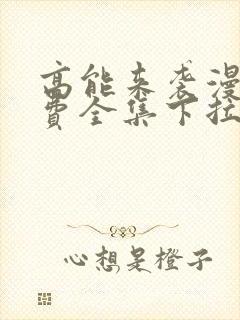 高能来袭漫
费全集下拉
心想是橙子